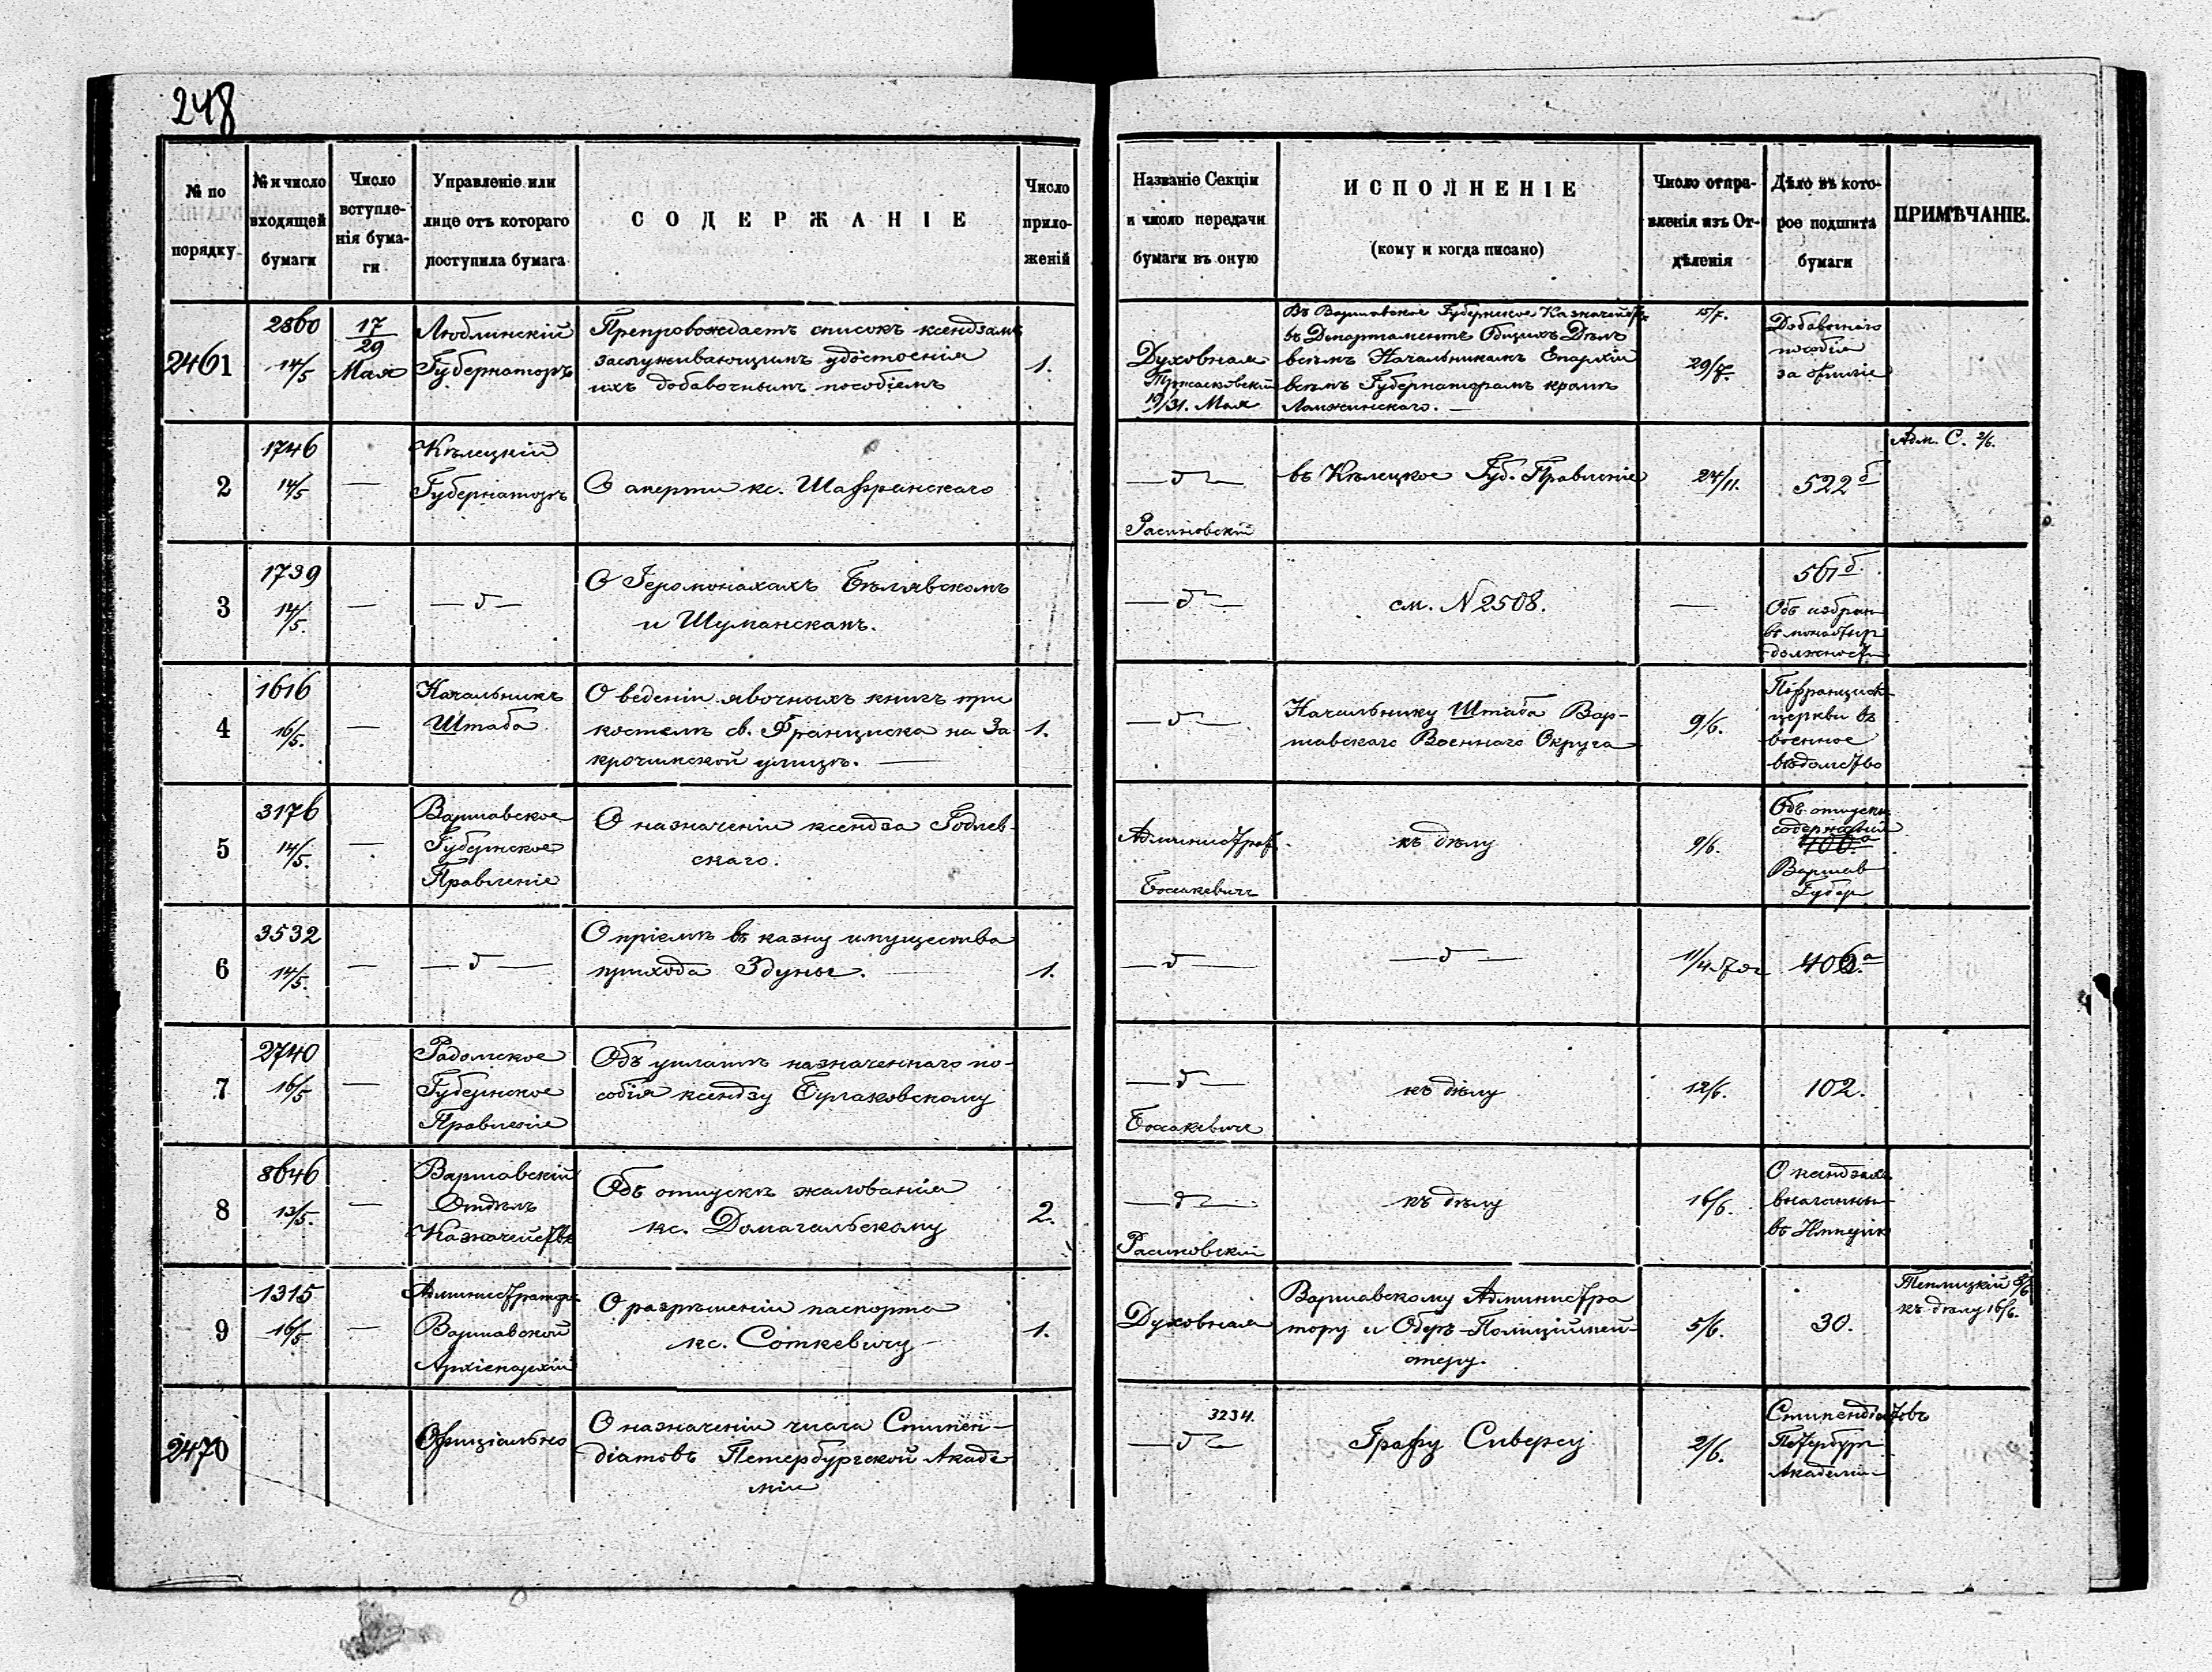 248
№ по порядку.
№ и число входящей бумаги
Число вступле-нія бума-ги
Управленіе или лице отъ котораго поступила бумага
СОДЕРЖАНІЕ
Число прило-женій
Названіе Секціи и число передачи бумаги въ оную
ИСПОЛНЕНІЕ
(кому и когда писано)
Число отпра-вленія изъ От-дѣленія
Дѣло въ кото-рое подшита бумаги
ПРИМѢЧАНІЕ.
2461
2860
14/5
17/29
Мая
Люблинскій
Губернаторъ
Препровождаетъ списокъ ксендзамъ
заслуживающимъ удостоенія
ихъ добавочнымъ пособіемъ
1.
Духовная
19/31. Мая
Въ Варшавское Губернское Казначейство
въ Департаментъ Общихъ Дѣлъ
всѣмъ Начальникамъ Епархіи
всѣмъ Губернаторамъ кромѣ
Ломжинскаго. —
15/7.
29/7.
Добавочнаго
пособія
за
2
1746
14/5
—
Кѣлецкій
Губернаторъ
О смерти кс. Шафранскаго
— д —
Расиновскій
въ Кѣлецкое Губ. Правленіе
24/11.
522 б
Адм. С. 2/6.
3
1739
14/5.
—
— д —
О Іеромонахахъ Бѣлявскомъ
и Шуманскамъ.
— д —
см. N 2508.
—
561 б.
Объ избран
въ монастыр
должност
4
1616
16/5.
—
Начальникъ
Штаба
О веденіи явочныхъ книгъ при
костелѣ св. Франциска на За
крочимской улицѣ. —
1.
— д —
Начальнику Штаба Вар-
шавскаго Военнаго Округа
9/6.
По францишк
церкви въ
военное
вѣдомство
5
3176
14/5.
—
Варшавское
Губернское
Правленіе
О назначеніи ксендза Годлев-
скаго.
Администрат.
Босакевичъ
къ дѣлу
9/6.
Объ отпуске
содержанія
106 а
Варшав
Губер
6
3532
14/5.
—
— д —
О пріемѣ въ казну имущества
прихода Здуны. —
1.
— д —
— д —
11/4
406 а
7
2740
16/5
—
Радомское
Губернское
Правленіе
Объ уплатѣ назначеннаго по-
собія ксендзу Бурлаковскому
— д —
Босакевичъ
къ дѣлу
12/6.
102.
8
8646
13/5.
—
Варшавскій
Отдѣлъ
Казначейства
Объ отпускѣ жалованія
кс. Домагальскому
2.
— д —
Расиновскій
къ дѣлу
16/6.
О ксендзахъ
въ Имперік
9
1315
16/5
—
Администраторъ
Варшавской
Архіепархіи
О разрѣшеніи паспорта
кс. Соткевичу —
1.
Духовная
Варшавскому Администра
тору и Оберъ-Полиціймей-
стеру.
5/6.
30.
Теплицкій 8/6
къ дѣлу 16/6.
2470
Офиціально
О назначеніи числа Стипен-
діатовъ Петербургской Акаде
міи
3234.
— д —
Графу Сиверсу
2/6.
Стипендіатовъ
Петербург
Академіи